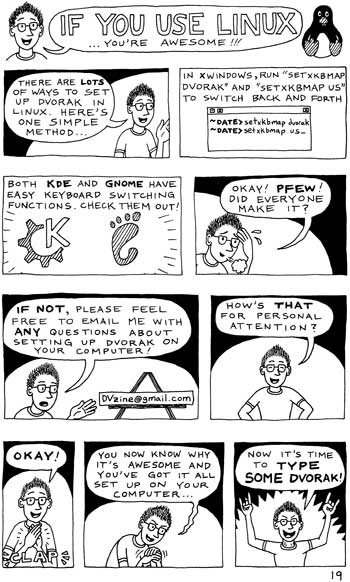 IF YOU USE LINUX
...YOU'RE AWESOME!!!
THERE ARE LOTS
OF WAYS TO SET
UP DVORAK IN
LINUX. HERE'S
ONE SIMPLE
METHOD...
IN XWINDOWS, RUN "SETXKBMAP
DVORAK" AND "SETXKBMAP US"
TO SWITCH BACK AND FORTH
~DATE>setxkbmap dvorak
~DATE>setxkbmap us_
BOTH KDE AND GNOME HAVE
EASY KEYBOARD SWITCHING
FUNCTIONS. CHECK THEM OUT!
K
OKAY! PFEW!
DID EVERYONE
MAKE IT?
IF NOT, PLEASE FEEL
FREE TO EMAIL ME WITH
ANY QUESTIONS ABOUT
SETTING UP DVORAK ON
YOUR COMPUTER!
DVzine@gmail.com
HOW'S THAT
FOR PERSONAL
ATTENTION?
OKAY!
CLAP
YOU NOW KNOW WHY
IT'S AWESOME AND
YOU'VE GOT IT ALL
SET UP ON YOUR
COMPUTER...
NOW IT'S TIME
TO TYPE
SOME DVORAK!
19